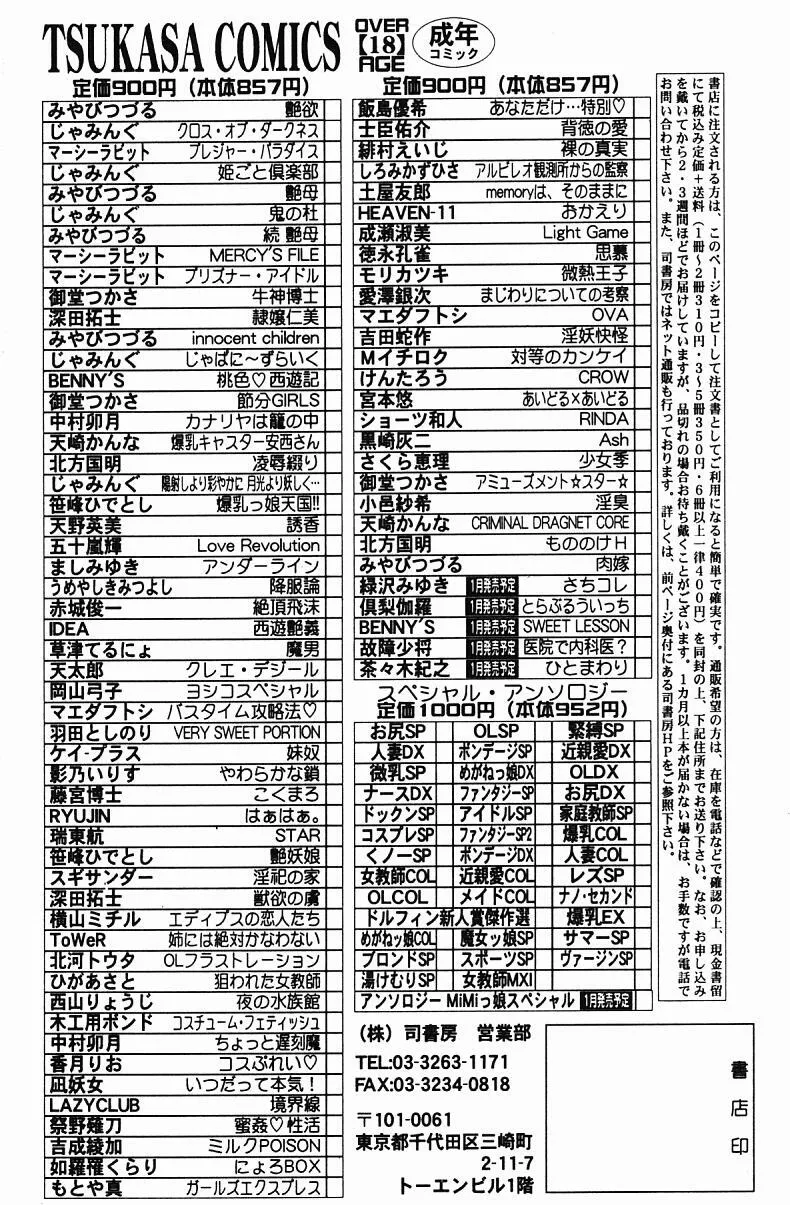 TSUKASA COMICS OVER【18】AGE 成年コミック
定価900円(本体857円)
みやびつづる 艶欲
じゃみんぐ クロス・オブ・ダークネス
マーシーラビット プレジャー・パラダイス
じゃみんぐ 姫ごと倶楽部
みやびつづる 艶母
じゃみんぐ 鬼の杜
みやびつづる 続 艶母
マーシーラビット MERCY'S FILE
マーシーラビット プリズナー・アイドル
御堂つかさ 牛神博士
深田拓士 隷嬢仁美
みやびつづる innocent children
じゃみんぐ じゃぱに〜ずらいく
BENNY'S 桃色♡西遊記
御堂つかさ 節分GIRLS
中村卯月 カナリヤは籠の中
天崎かんな 爆乳キャスター安西さん
北方国明 凌辱綴り
じゃみんぐ 陽射しより彩やかに 月光より妖しく…
笹峰ひでとし 爆乳っ娘天国!!
天野英美 誘香
五十嵐輝 Love Revolution
ましみゆき アンダーライン
うめやしきみつよし 降服論
赤城俊一 絶頂飛沫
IDEA 西遊艶義
草津てるにょ 魔男
天太郎 クレエ・デジール
岡山弓子 ヨシコスペシャル
マエダフトシ バスタイム攻略法♡
羽田としのり VERY SWEET PORTION
ケイ・プラス 妹奴
影乃いりす やわらかな鎖
藤宮博士 こくまろ
RYUJIN はぁはぁ。
瑞東航 STAR
笹峰ひでとし 艶妖娘
スギサンダー 淫祀の家
深田拓士 獣欲の虜
横山ミチル エディプスの恋人たち
ToWeR 姉には絶対かなわない
北河トウタ OLフラストレーション
ひがあさと 狙われた女教師
西山りょうじ 夜の水族館
木工用ボンド コスチューム・フェティッシュ
中村卯月 ちょっと遅刻魔
香月りお コスぷれい♡
凪妖女 いつだって本気!
LAZYCLUB 境界線
祭野薙刀 蜜姦♡性活
吉成綾加 ミルクPOISON
如羅罹くらり にょろBOX
もとや真 ガールズエクスプレス
定価900円(本体857円)
飯島優希 あなただけ…特別♡
士臣佑介 背徳の愛
緋村えいじ 裸の真実
しろみかずひさ アルビレオ観測所からの監察
土屋友郎 memoryは、そのままに
HEAVEN-11 おかえり
成瀬淑美 Light Game
徳永孔雀 思慕
モリカツキ 微熱王子
愛澤銀次 まじわりについての考察
マエダフトシ OVA
吉田蛇作 淫妖快怪
Mイチロク 対等のカンケイ
けんたろう CROW
宮本悠 あいどる×あいどる
ショーツ和人 RINDA
黒崎灰二 Ash
さくら恵理 少女季
御堂つかさ アミューズメント☆スター☆
小邑紗希 淫臭
天崎かんな CRIMINAL DRAGNET CORE
北方国明 もののけH
みやびつづる 肉嫁
緑沢みゆき 1月発売予定 さちコレ
倶梨伽羅 1月発売予定 とらぶるういっち
BENNY'S 1月発売予定 SWEET LESSON
故障少将 1月発売予定 医院で内科医?
茶々木紀之 1月発売予定 ひとまわり
スペシャル・アンソロジー
定価1000円(本体952円)
お尻SP OLSP 緊縛SP
人妻DX ボンデージSP 近親愛DX
微乳SP めがねっ娘DX OLDX
ナースDX ファンタジーSP お尻DX
ドックンSP アイドルSP 家庭教師SP
コスプレSP ファンタジーSP2 爆乳COL
くノ一SP ボンデージDX 人妻COL
女教師COL 近親愛COL レズSP
OLCOL メイドCOL ナノ・セカンド
ドルフィン新人賞傑作選 爆乳EX
めがねッ娘COL 魔女ッ娘SP サマーSP
ブロンドSP スポーツSP ヴァージンSP
湯けむりSP 女教師MXI
アンソロジー MiMiっ娘スペシャル 1月発売予定
書店に注文される方は、このページをコピーして注文書としてご利用になると簡単で確実です。通販希望の方は、在庫を電話などで確認の上、現金書留
にて税込み定価+送料(1冊〜2冊310円・3〜5冊350円・6冊以上一律400円)を同封の上、下記住所までお送り下さい。なお、お申し込み
を戴いてから2・3週間ほどでお届けしていますが、品切れの場合お待ち戴くことがございます。1カ月以上本が届かない場合は、お手数ですが電話で
お問い合わせ下さい。また、司書房ではネット通販も行っております。詳しくは、前ページ奥付にある司書房HPをご参照下さい。
(株)司書房 営業部
TEL:03-3263-1171
FAX:03-3234-0818
〒101-0061
東京都千代田区三崎町
2-11-7
トーエンビル1階
書店印